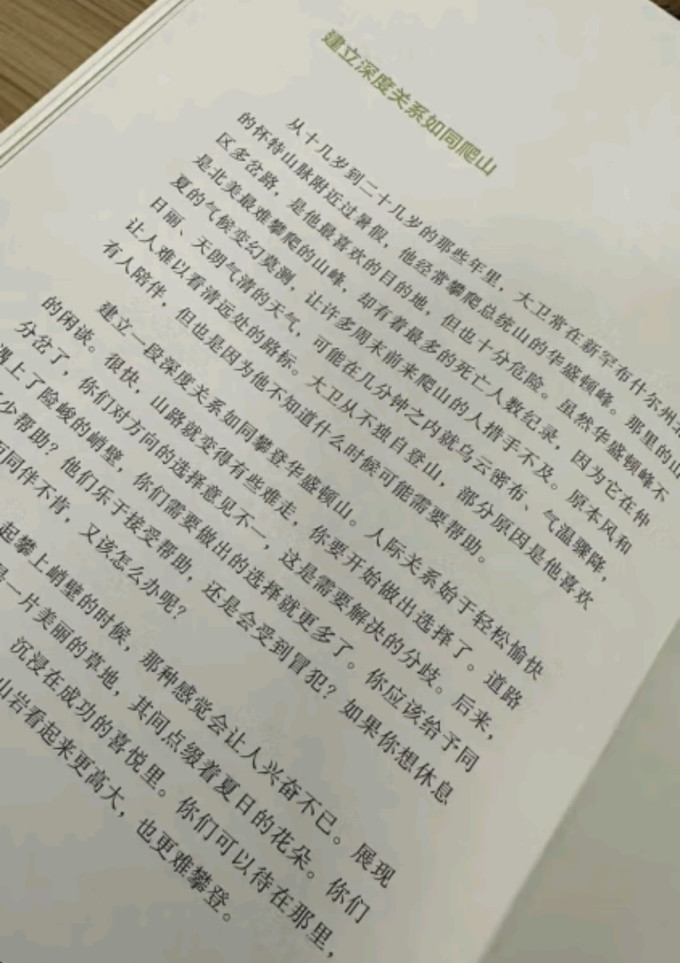 建立深度关系如同爬山
从十几岁到二十几岁的那些年里，大卫常在新罕布什尔州北
的怀特山脉附近过暑假，他经常攀爬总统山的华盛顿峰。那里的山
区多岔路，是他最喜欢的目的地，但也十分危险。虽然华盛顿峰不
是北美最难攀爬的山峰，却有着最多的死亡人数纪录，因为它在仲
夏的气候变幻莫测，让许多周末前来爬山的人措手不及。原本风和
日丽、天朗气清的天气，可能在几分钟之内就乌云密布、气温骤降，
让人难以看清远处的路标。大卫从不独自登山，部分原因是他喜欢
有人陪伴，但也是因为他不知道什么时候可能需要帮助。
建立一段深度关系如同攀登华盛顿山。人际关系始于轻松愉快
的闲谈。很快，山路就变得有些难走，你要开始做出选择了。道路
分岔了，你们对方向的选择意见不一，这是需要解决的分歧。后来，
遇上了险峻的峭壁，你们需要做出的选择就更多了。你应该给予同
少帮助？他们乐于接受帮助，还是会受到冒犯？如果你想休息
而同伴不肯，又该怎么办呢？
起攀上峭壁的时候，那种感觉会让人兴奋不已。展现
是一片美丽的草地，其间点缀着夏日的花朵。你们
沉浸在成功的喜悦里。你们可以待在那里，
山岩看起来更高大，也更难攀登。